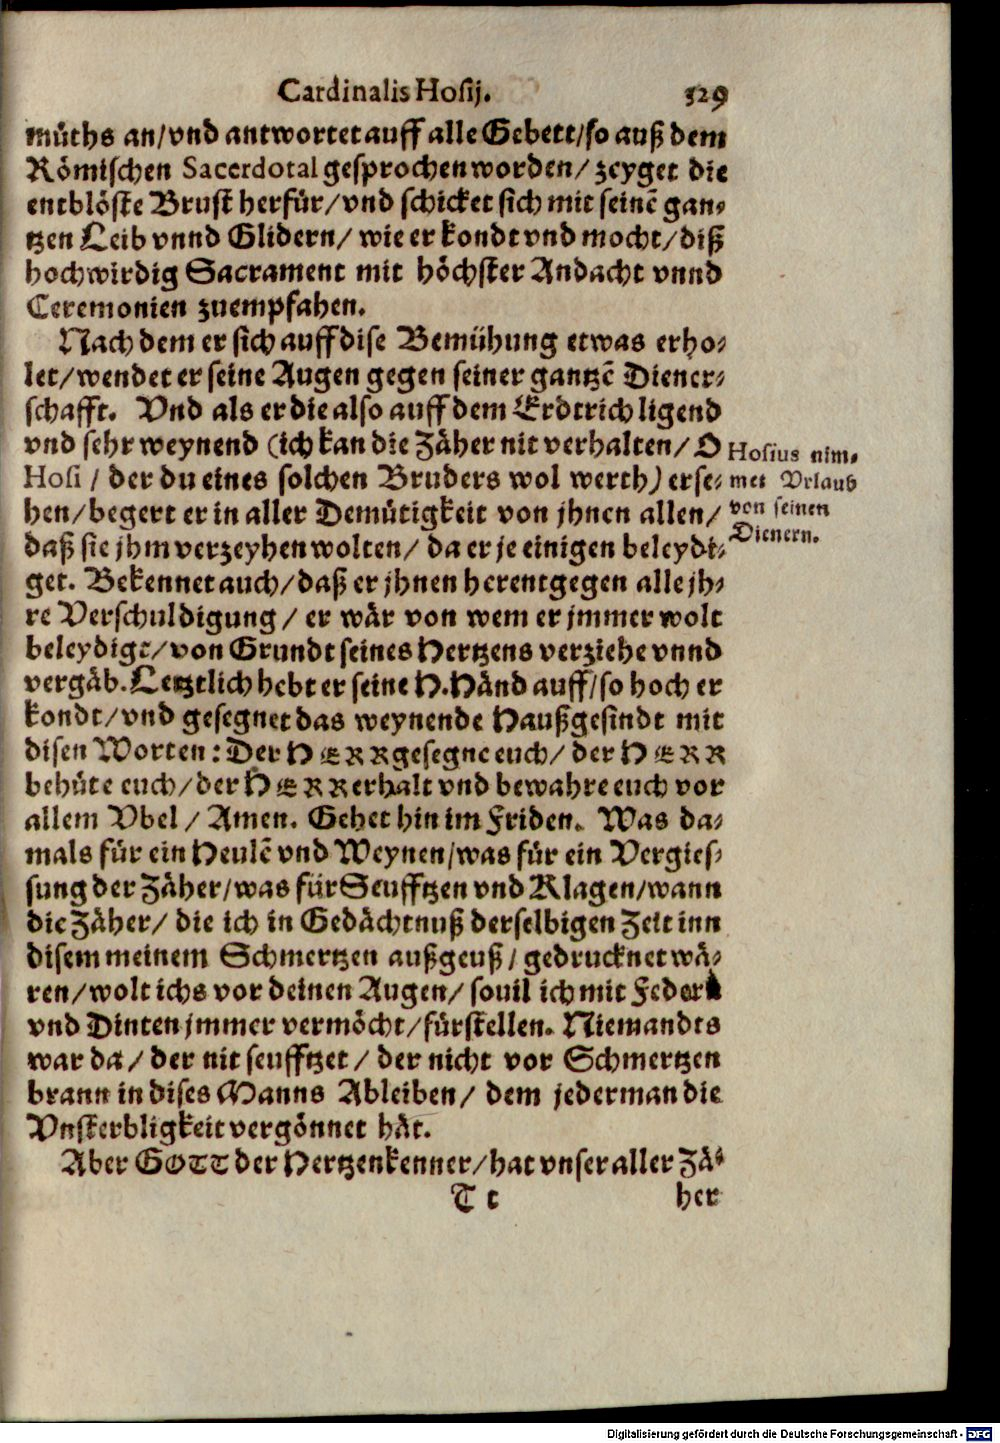 Cardinalis Hosij. 329
müths an/vnd antwortet auff alle Gebett/so auß dem
Römischen Sacerdotal gesprochen worden/ zeyget die
entblöste Brust herfür/vnd schicket sich mit seinē gan-
tzen Leib vnnd Glidern/ wie er kondt vnd mocht/diß
hochwirdig Sacrament mit höchster Andacht vnnd
Ceremonien zuempfahen.
Nach dem er sich auff dise Bemühung etwas erho-
let/wendet er seine Augen gegen seiner gantzē Diener-
schafft. Vnd als er die also auff dem Erdtrich ligend
vnd sehr weynend (ich kan die Zäher nit verhalten/ O
Hosi / der du eines solchen Bruders wol werth) erse-
hen/begert er in aller Demütigkeit von jhnen allen/
daß sie jhm verzeyhen wolten/ da er je einigen beleydi-
get. Bekennet auch/daß er jhnen herentgegen alle jh-
re Verschuldigung / er wär von wem er jmmer wolt
beleydigt/von Grundt seines Hertzens verziehe vnnd
vergäb. Letztlich hebt er seine H. Händ auff/so hoch er
kondt/vnd gesegnet das weynende Haußgesindt mit
disen Worten: Der HERR gesegne euch/ der HERR
behüte euch/der HERR erhalt vnd bewahre euch vor
allem Vbel / Amen. Gehet hin im Friden. Was da-
mals für ein Heulē vnd Weynen/was für ein Vergies-
sung der Zäher/was für Seufftzen vnd Klagen/wann
die Zäher/ die ich in Gedächtnuß derselbigen Zeit inn
disem meinem Schmertzen außgeuß/ gedrucknet wä-
ren/wolt ichs vor deinen Augen/ souil ich mit Feder
vnd Dinten jmmer vermöcht/fürstellen. Niemandts
war da/ der nit seufftzet / der nicht vor Schmertzen
brann in dises Manns Ableiben/ dem jederman die
Vnsterbligkeit vergönnet hät.
Aber GOTT der Hertzenkenner/hat vnser aller Zä-
T t her
Hosius nim-
met Vrlaub
von seinen
Dienern.
Digitalisierung gefördert durch die Deutsche Forschungsgemeinschaft - DFG